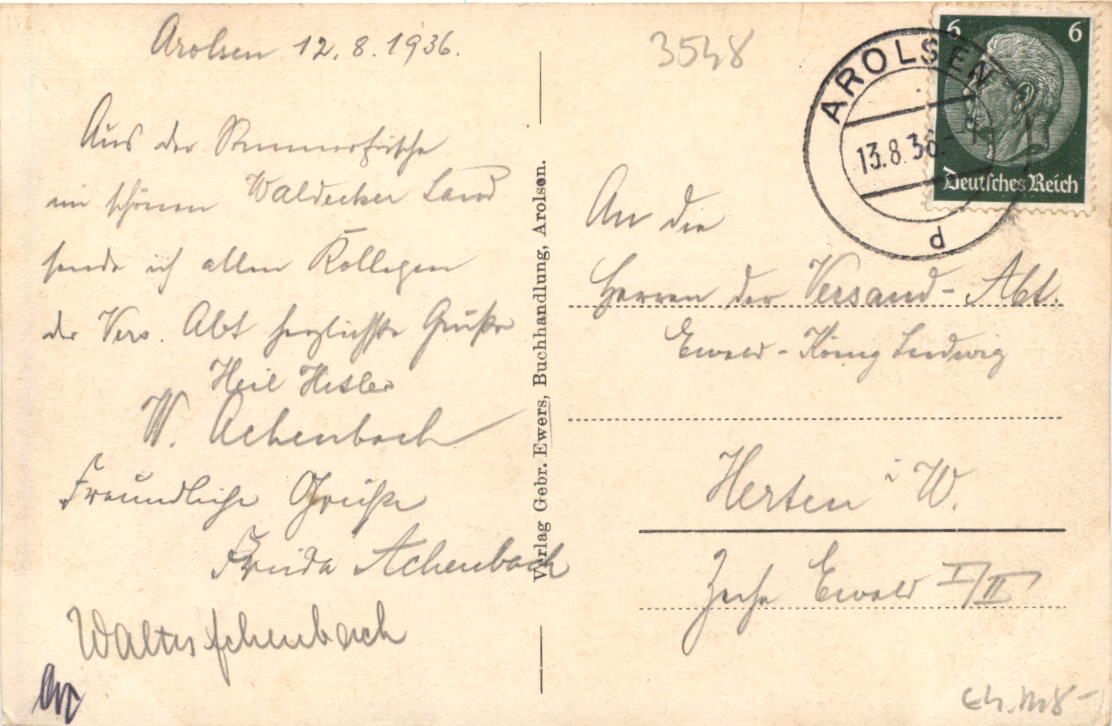 Arolsen 12.8.1936.
Aus der Sommerfrische
im schönen Waldecker Land
sende ich allen Kollegen
der Vers. Abt herzlichste Grüße
Heil Hitler
W. Achenbach
Freundliche Grüße
Frieda Achenbach
Walter Achenbach
Verlag Gebr. Ewers, Buchhandlung, Arolsen.
3548
AROLSEN
13.8.36
d
6 6
Deutsches Reich
An die
Herren der Versand-Abt.
Ewald-König Ludwig
Herten i W.
Zeche Ewald I/II